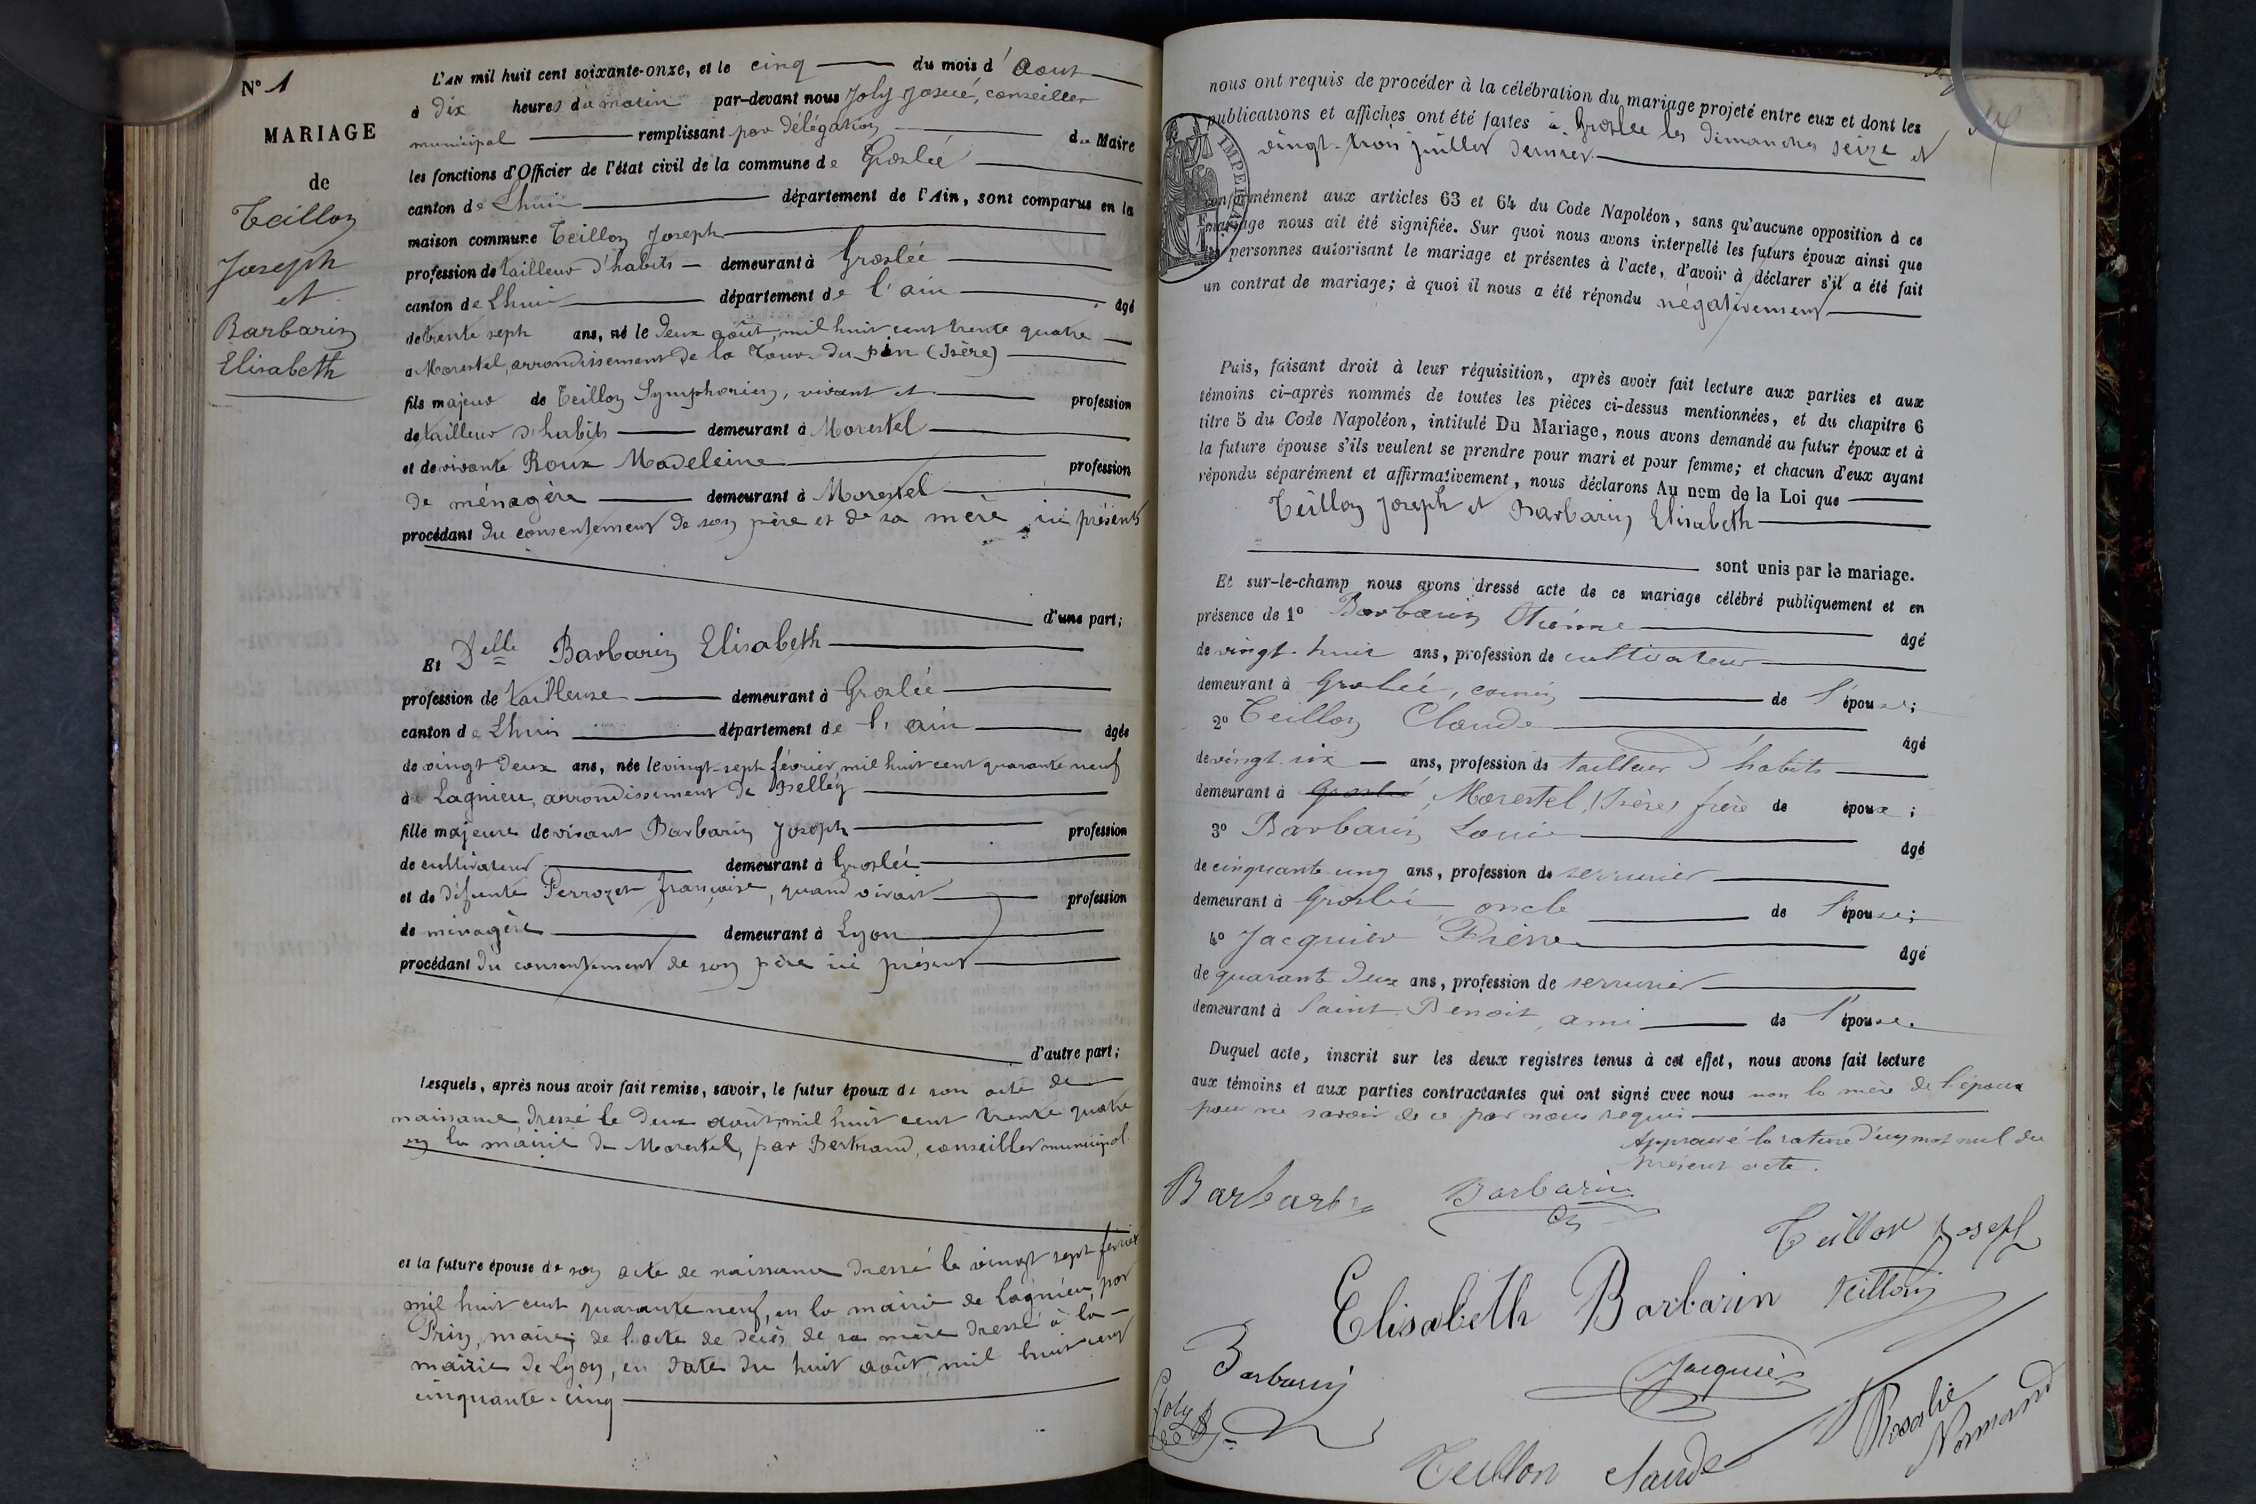 N° 1
MARIAGE
de
Teillon
Joseph
et
Barbarin
Elisabeth
L'AN mil huit cent soixante-onze, et le cinq du mois d'Aout
à dix heures du matin par-devant nous Joly Josué, conseiller
municipal remplissant par délégation du Maire
les fonctions d'Officier de l'état civil de la commune de Groslée
canton de Lhuis département de l'Ain, sont comparus en la
maison commune Teillon Joseph
profession de tailleur d'habits demeurant à Groslée
canton de Lhuis département de l'ain âgé
de trente sept ans, né le deux août, mil huit cent trente quatre
à Morestel, arrondissement de la Tour-du-pin (Isère)
fils majeur de Teillon Symphorien, vivant et profession
de tailleur d'habits demeurant à Morestel
et de vivante Roux Madeleine profession
de ménagère demeurant à Morestel
procédant du consentement de son père et de sa mère ici présents
d'une part;
Et Delle Barbarin Elisabeth
profession de tailleuse demeurant à Groslée
canton de Lhuis département de l'ain âgée
de vingt deux ans, née le vingt-sept février mil huit cent quarante neuf
à Lagnieu, arrondissement de Belley
fille majeure de vivant Barbarin Joseph profession
de cultivateur demeurant à Groslée
et de défunte Perrozet françoise, quand vivait profession
de ménagère demeurant à Lyon
procédant du consentement de son père ici présent
d'autre part;
Lesquels, après nous avoir fait remise, savoir, le futur époux de son acte de
naissance dressé le deux août, mil huit cent trente quatre
en la mairie de Morestel, par Bertrand, conseiller municipal
et la future épouse de son acte de naissance dressé le vingt sept février
mil huit cent quarante neuf, en la mairie de Lagnieu, par
Prin, maire; de l'acte de décès de sa mère dressé à la
mairie de Lyon, en date du huit août mil huit cent
cinquante-cinq
nous ont requis de procéder à la célébration du mariage projeté entre eux et dont les
publications et affiches ont été faites à Groslée les dimanches seize et
vingt-trois juillet dernier
IMPERIAL
conformément aux articles 63 et 64 du Code Napoléon, sans qu'aucune opposition à ce
mariage nous ait été signifiée. Sur quoi nous avons interpellé les futurs époux ainsi que
les personnes autorisant le mariage et présentes à l'acte, d'avoir à déclarer s'il a été fait
un contrat de mariage; à quoi il nous a été répondu négativement
Puis, faisant droit à leur réquisition, après avoir fait lecture aux parties et aux
témoins ci-après nommés de toutes les pièces ci-dessus mentionnées, et du chapitre 6
titre 5 du Code Napoléon, intitulé Du Mariage, nous avons demandé au futur époux et à
la future épouse s'ils veulent se prendre pour mari et pour femme; et chacun d'eux ayant
répondu séparément et affirmativement, nous déclarons Au nom de la Loi que
Teillon Joseph et Barbarin Elisabeth
sont unis par le mariage.
Et sur-le-champ nous avons dressé acte de ce mariage célébré publiquement et en
présence de 1° Barbarin Etienne âgé
de vingt-huit ans, profession de cultivateur
demeurant à Groslée, cousin de l'épouse;
2° Teillon Claude âgé
de vingt-six ans, profession de tailleur d'habits
demeurant à Groslée, Morestel (Isère) frère de époux;
3° Barbarin Louis âgé
de cinquante-un ans, profession de serrurier
demeurant à Groslée oncle de l'épouse;
4° Jacquier Pierre âgé
de quarante deux ans, profession de serrurier
demeurant à Saint-Benoit, ami de l'épouse.
Duquel acte, inscrit sur les deux registres tenus à cet effet, nous avons fait lecture
aux témoins et aux parties contractantes qui ont signé avec nous non la mère de l'époux
pour ne savoir de ce par nous requis
Approuvé la rature d'un mot nul du
présent acte.
Barbarin Barbarin
Teillon Joseph
Elisabeth Barbarin Teillon
Barbarin Jacquier
Joly
Rosalie
Normand
Teillon Claude